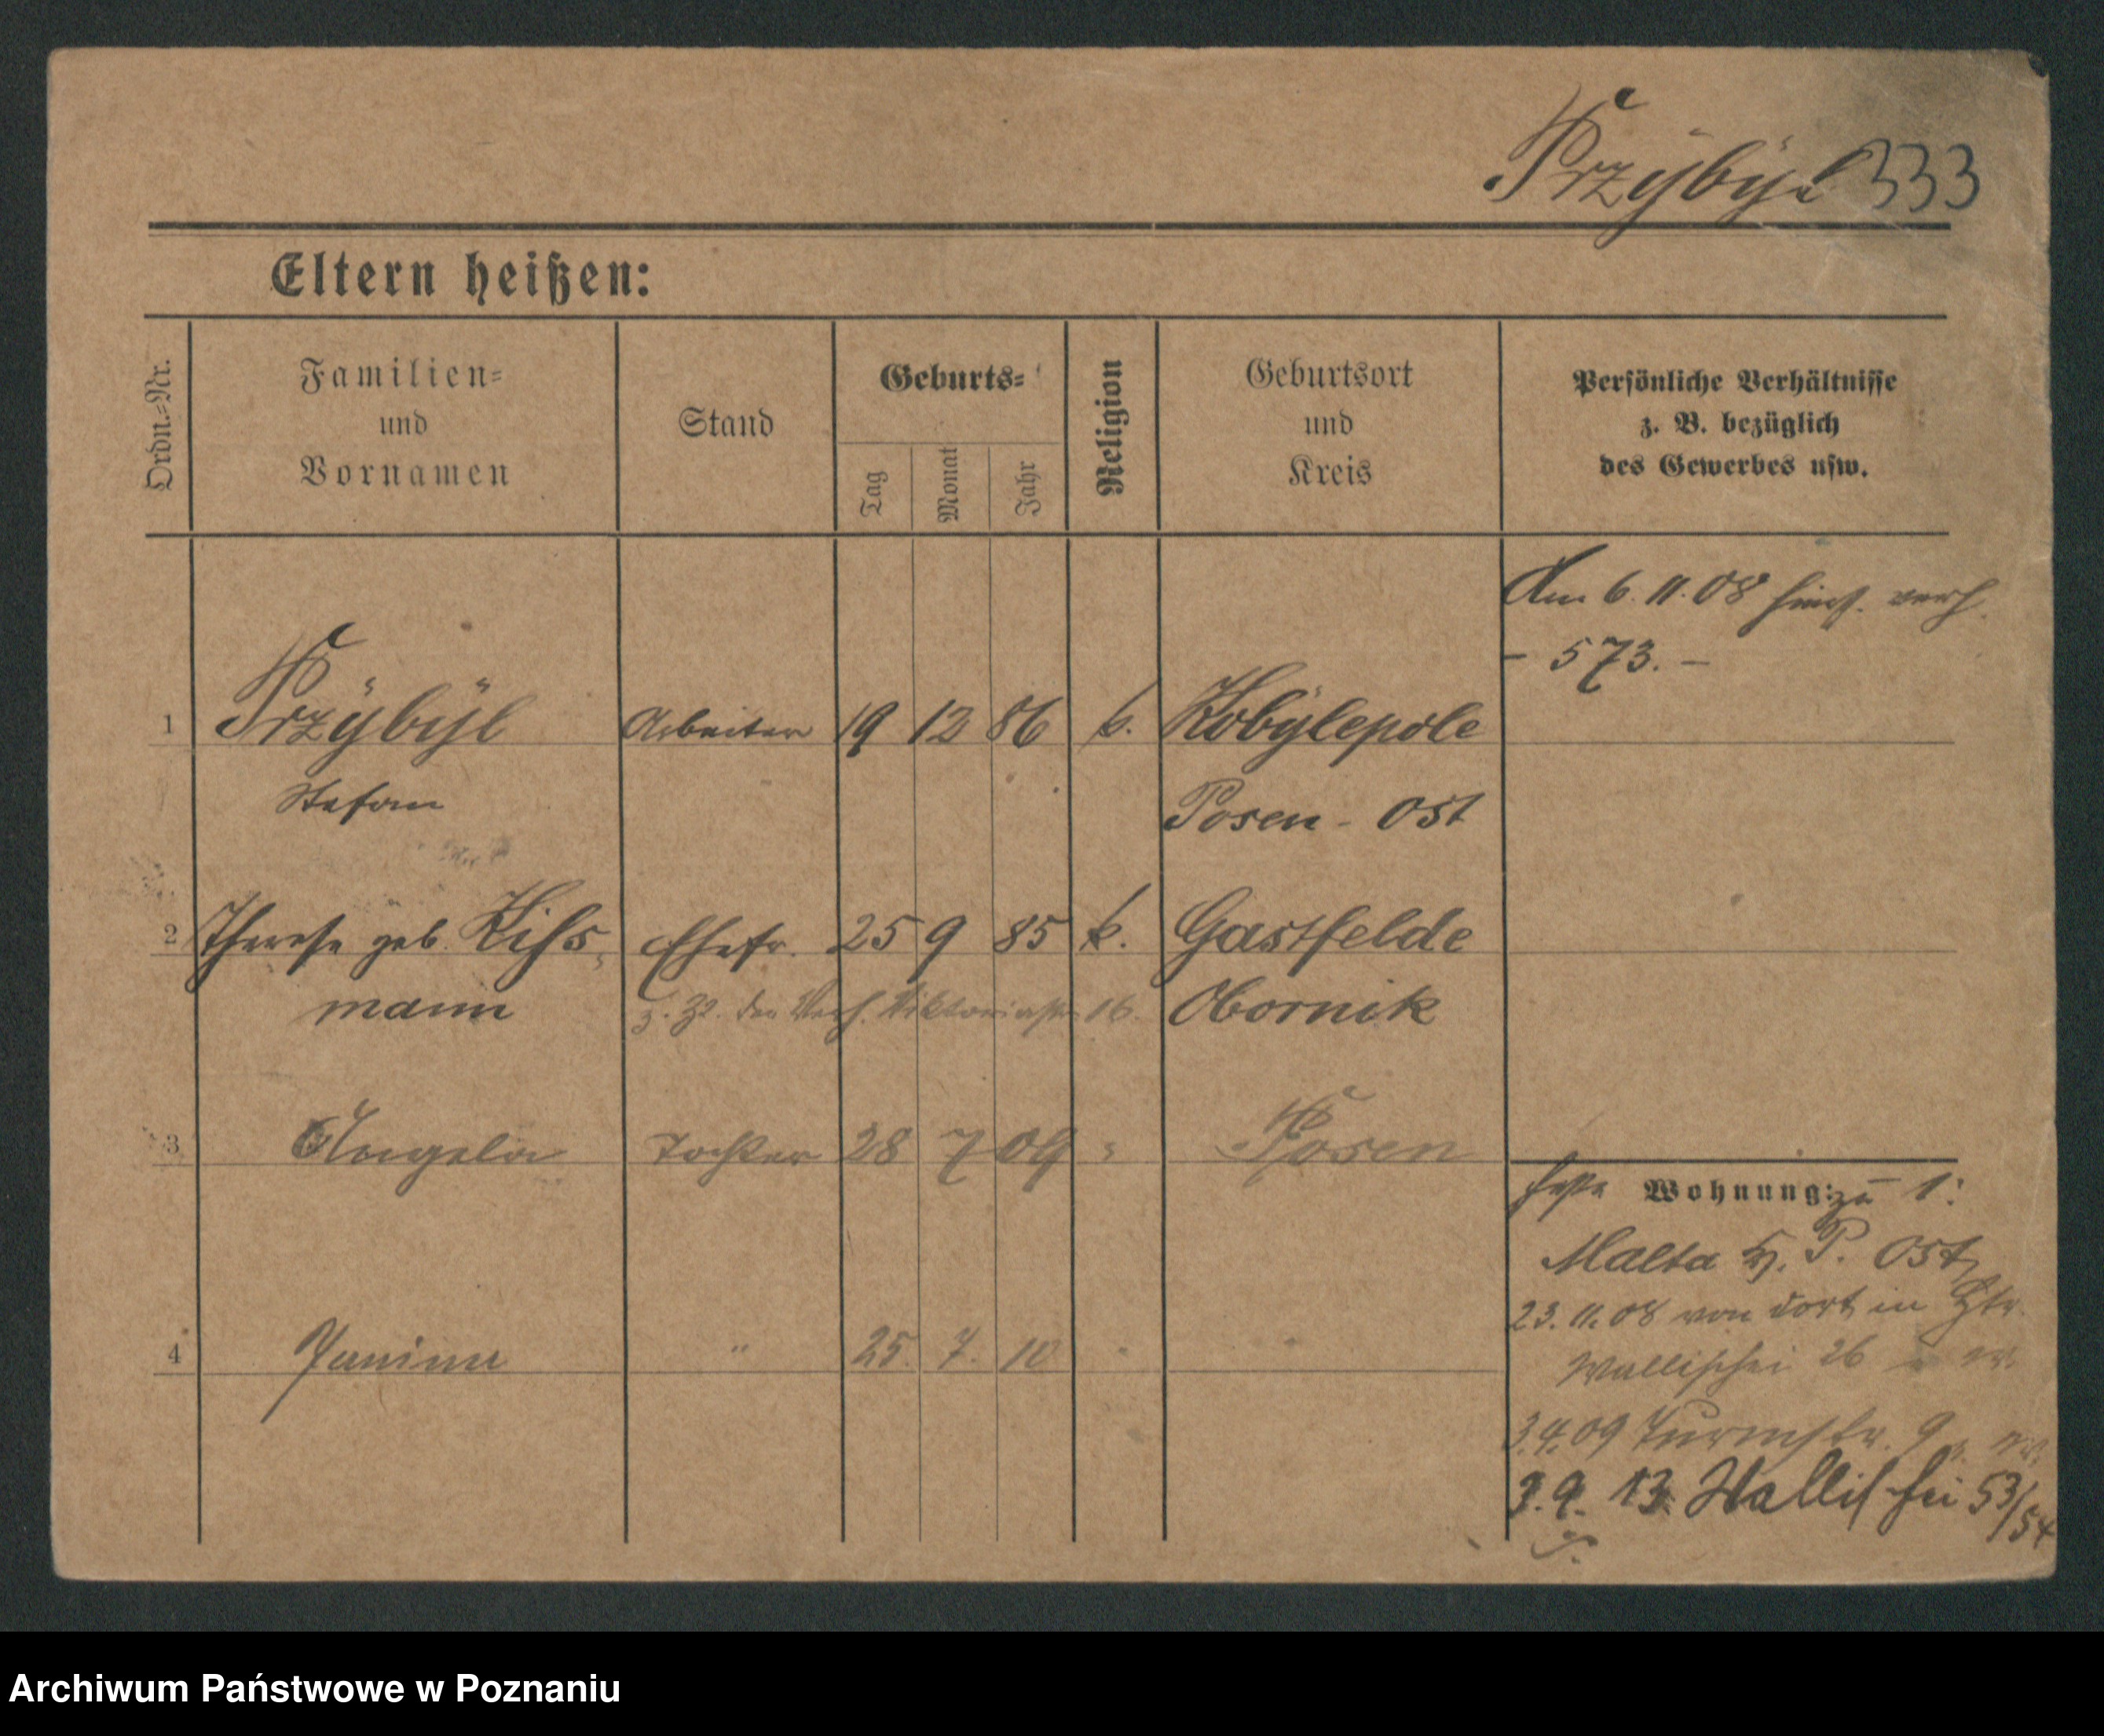 Przÿbÿl 333
Eltern heißen:
Ordn.-Nr.
Familien-
und
Vornamen
Stand
Geburts-
Tag
Monat
Jahr
Religion
Geburtsort
und
Kreis
Persönliche Verhältnisse
z. B. bezüglich
des Gewerbes usw.
Am 6. 11. 08 hier verh.
- 573. -
1 Przÿbÿl Arbeiter 19 12 86 k. Kobÿlepole
Stefan Posen - Ost
2 Therese geb. Ehefr. 25 9 85 k. Gastfelde
mann z. Zt. Viktoriastr 16. Obornik
3 Angela Tochter 28 7 09 " Posen
Wohnung: zu 1:
Malta P. Ost
23. 11. 08 von dort in
4 Janina " 25. 7. 10 " "
Wallischei 26
3.4.09 Turmstr. 9
3. 9. 13 Wallischei 53/54
Archiwum Państwowe w Poznaniu